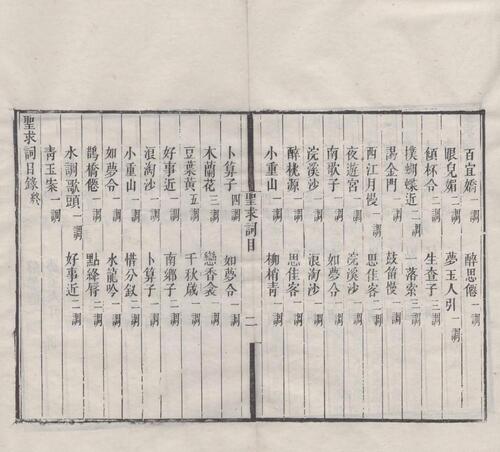 百宜嬌一調　醉思僊一調
眼兒媚二調　夢玉人引一調
傾杯令二調　生查子三調
撲蝴蝶近二調　一落索三調
謁金門一調　鼓笛慢一調
西江月慢一調　思佳客二調
夜遊宮一調　浣溪沙一調
南歌子一調　如夢令一調
浣溪沙一調　浪淘沙一調
醉桃源一調　思佳客一調
小重山一調　柳梢青一調
聖求詞目　二
卜算子四調　如夢令一調
木蘭花三調　戀香衾一調
豆葉黃五調　千秋歲一調
好事近一調　南鄉子一調
浪淘沙一調　卜算子一調
小重山一調　惜分釵二調
如夢令一調　水龍吟一調
鵲橋僊一調　點絳脣一調
水調歌頭一調　好事近二調
青玉案一調
聖求詞目錄終